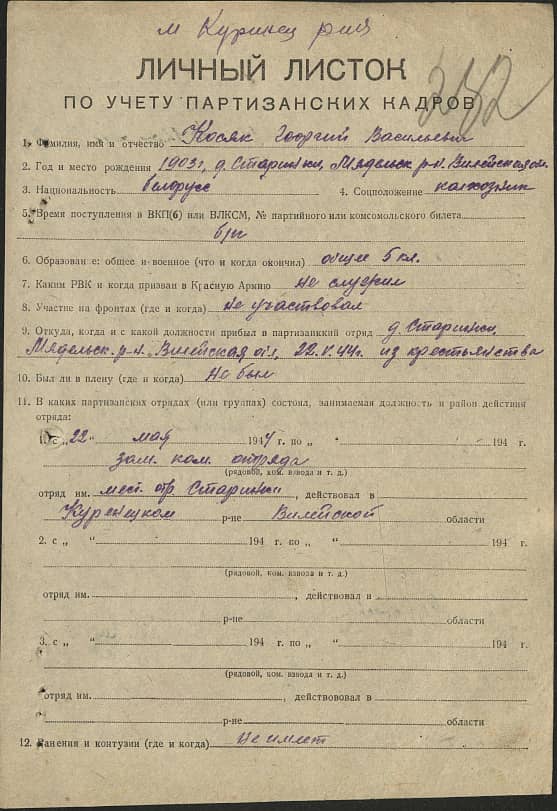 м Куринец р-на
252
ЛИЧНЫЙ ЛИСТОК
ПО УЧЕТУ ПАРТИЗАНСКИХ КАДРОВ
1. Фамилия, имя и отчество Косяк Георгий Васильевич
2. Год и место рождения 1903г, д. Старинки, Мядельск. р-н. Вилейская обл.
3. Национальность белорусс 4. Соцположение колхозник
5. Время поступления в ВКП(б) или ВЛКСМ, № партийного или комсомольского билета
б/п
6. Образование: общее и военное (что и когда окончил) общее 5 кл.
7. Каким РВК и когда призван в Красную Армию не служил
8. Участие на фронтах (где и когда) не участвовал
9. Откуда, когда и с какой должности прибыл в партизанкий отряд д. Старинки,
Мядельск. р-н. Вилейская обл, 22.V.44г. из крестьянства
10. Был ли в плену (где и когда) Не был
11. В каких партизанских отрядах (или группах) состоял, занимаемая должность и район действия
отряда:
1. с „22" мая 1944 г. по „ " 194 г.
зам. ком. отряда
(рядовой, ком. взвода и т. д.)
отряд им. мест. отр. Старинки, действовал в
Куренецком р-не Вилейской области
2. с „ " 194 г. по „ " 194 г.
(рядовой, ком. взвода и т. д.)
отряд им. , действовал в
р-не области
3. с „ " 194 г. по „ " 194 г.
(рядовой, ком. взвода и т. д.)
отряд им. , действововал в
р-не области
12. Ранения и контузии (где и когда) не имеет